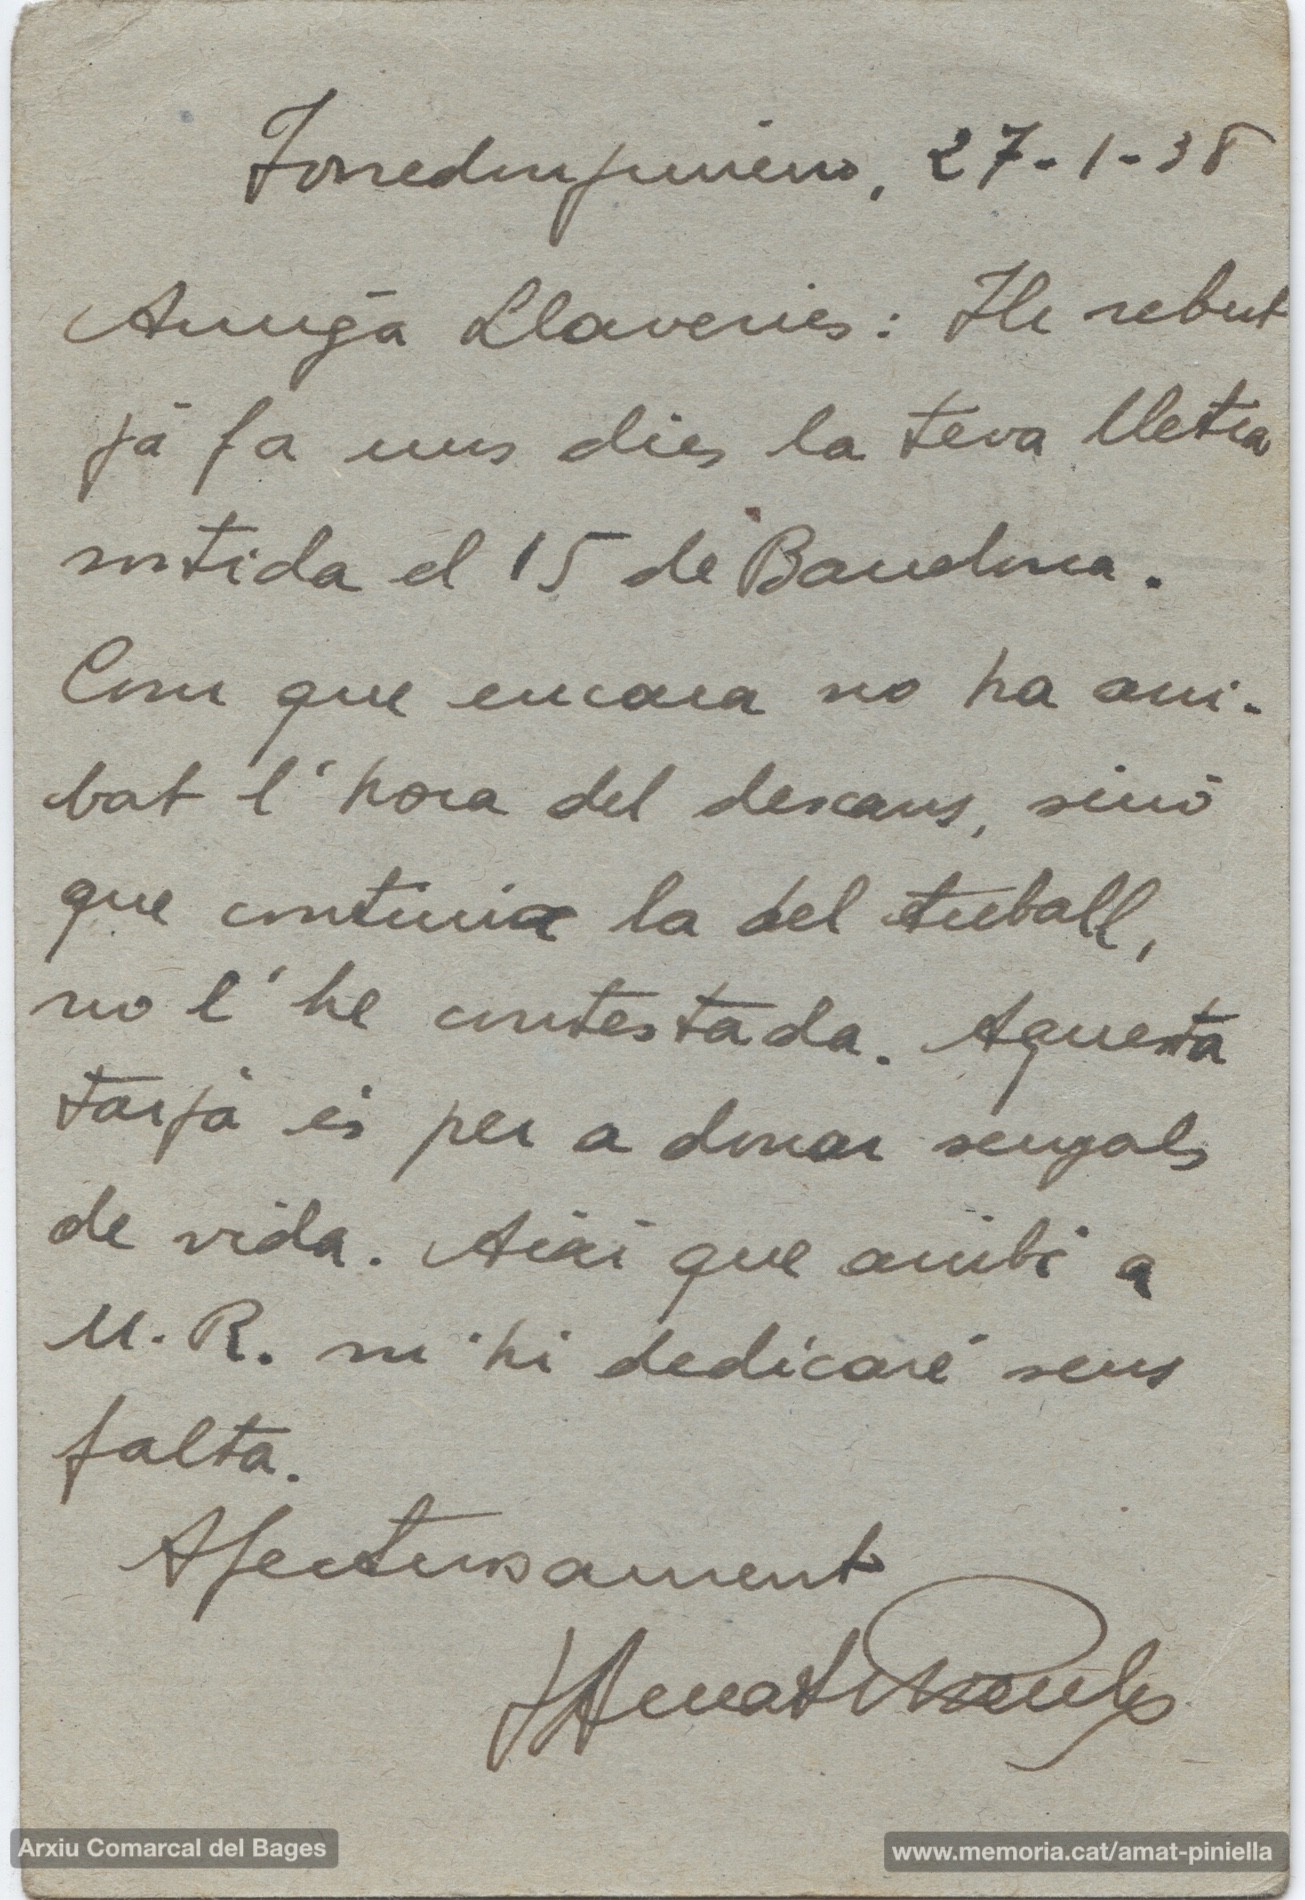 Torredonjimeno, 27-1-38
Amiga Llaveries: He rebut
ja fa uns dies la teva lletra
sortida el 15 de Barcelona.
Com que encara no ha arri-
bat l'hora del descans, sinó
que continua la del treball,
no l'he contestada. Aquesta
tarja és per a donar senyals
de vida. Aixi que arribi a
M. R. m'hi dedicaré sens
falta.
Afectuosament
J Amat Piniella
Arxiu Comarcal del Bages
www.memoria.cat/amat-piniella